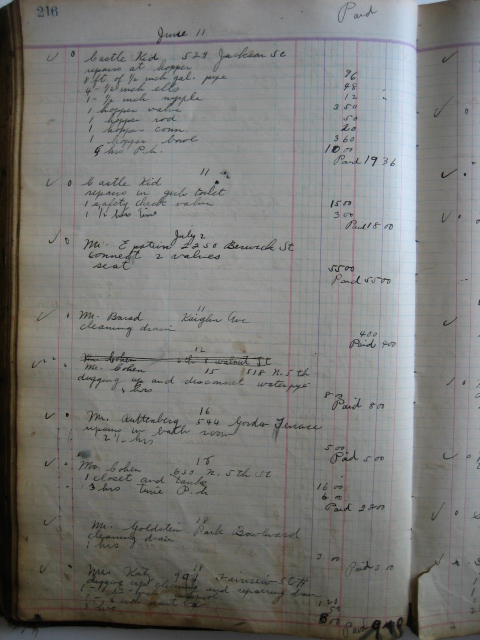 216
Paid
June 11
Castle Kid 529 Jackson St
repairs at hopper
8 ft of 1/2 inch gal. pipe 96
4 - 1/2 inch ells 48
1 - 1/2 inch nipple 12
1 hopper valve 3 50
1 hopper rod 50
1 hopper conn. 20
1 hopper bowl 3 60
5 hrs P.h. 10 00
Paid 19 36
11
Castle Kid
repairs in girls toilet
1 safety check valve 15 00
1 1/2 hrs time 3 00
Paid 18 00
July 2
Mr. Epstein 2250 Berwick St
connect 2 valves
seat 55 00
Paid 55 00
11
Mr. Barad Kaighn Ave
cleaning drain 4 00
Paid 4 00
12
Mr. Cohen Walnut St
Mr. Cohen 15 518 N. 5th
digging up and disconnect waterpipe
hrs 8 00
Paid 8 00
16
Mr. Auttenberg 544 Gordon Terrace
repairs in bath room
2 1/2 hrs 5 00
Paid 5 00
18
Mr. Cohen 630 N. 5th St
1 closet and tank 16 00
3 hrs time P.h 6 00
Paid 22 00
Mr. Goldstein Park Boulevard
cleaning drain
1 hrs 2 00
Paid 2 00
Mrs. Katz Fairview St
digging up cleaning and repairing drain
hrs 8 00
Paid